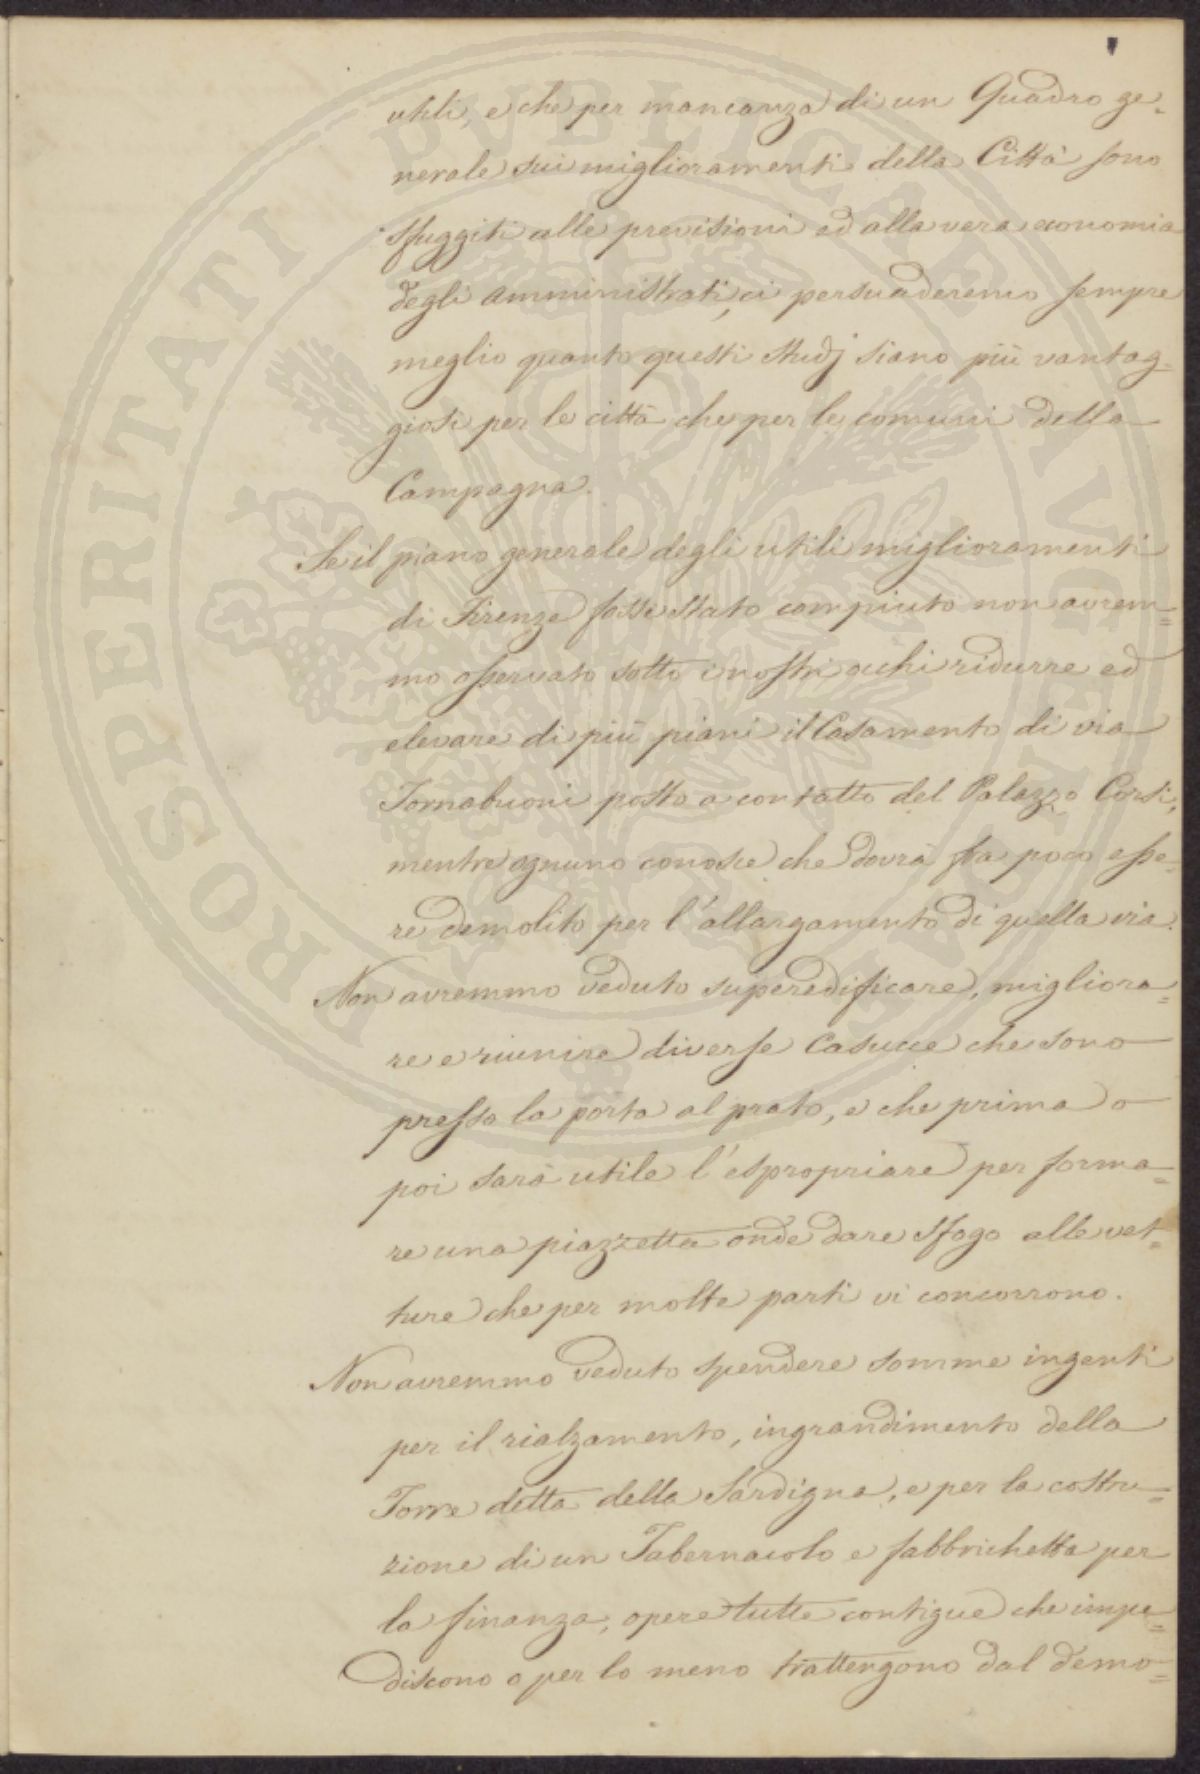 utili, e che per mancanza di un Quadro ge-
nerale sui miglioramenti della Città sono
sfuggiti alle previsioni ed alla vera economia
degli amministrati, ci persuaderemo sempre
meglio quanto questi studj siano più vantag-
giosi per le città che per le comuni della
Campagna.
Se il piano generale degli utili miglioramenti
di Firenze fosse stato compiuto non avrem=
mo osservato sotto i nostri occhi ridurre ed
elevare di più piani il Casamento di via
Tornabuoni posto a contatto del Palazzo Corsi,
mentre ognuno conosce che dovrà fra poco esse-
re demolito per l'allargamento di quella via.
Non avremmo veduto superedificare, migliora=
re e riunire diverse Casucce che sono
presso la porta al prato, e che prima o
poi sarà utile l'espropriare per forma=
re una piazzetta onde dare sfogo alle vet=
ture che per molte parti vi concorrono.
Non avremmo veduto spendere somme ingenti
per il rialzamento, ingrandimento della
Torre detta della Sardigna, e per la costru=
zione di un Tabernacolo e fabbrichetta per
la finanza; opere tutte contigue che impe=
discono o per lo meno trattengono dal demo=
PROSPERITATI PUBLICAE AUGENDAE